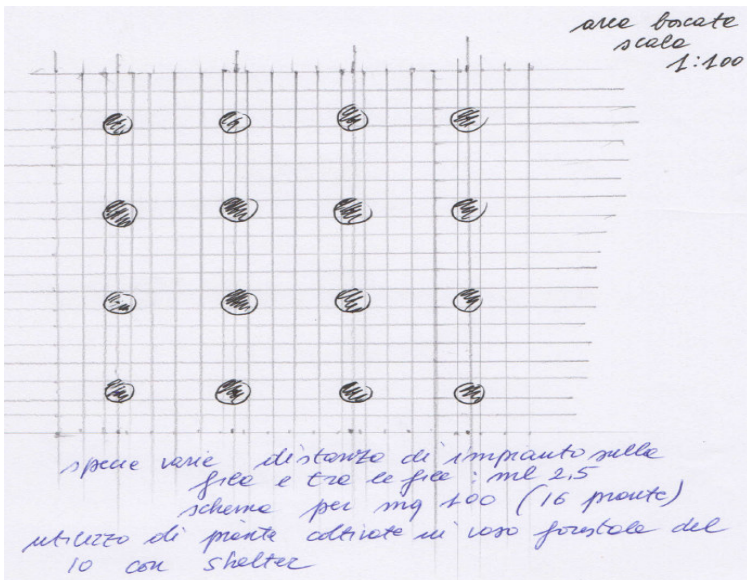 aree boscate
scala
1:100
specie varie distanza di impianto sulla
fila e tra le file : ml 2,5
schema per mq 100 (16 piante)
utilizzo di piante coltivate in vaso forestale del
10 con shelter